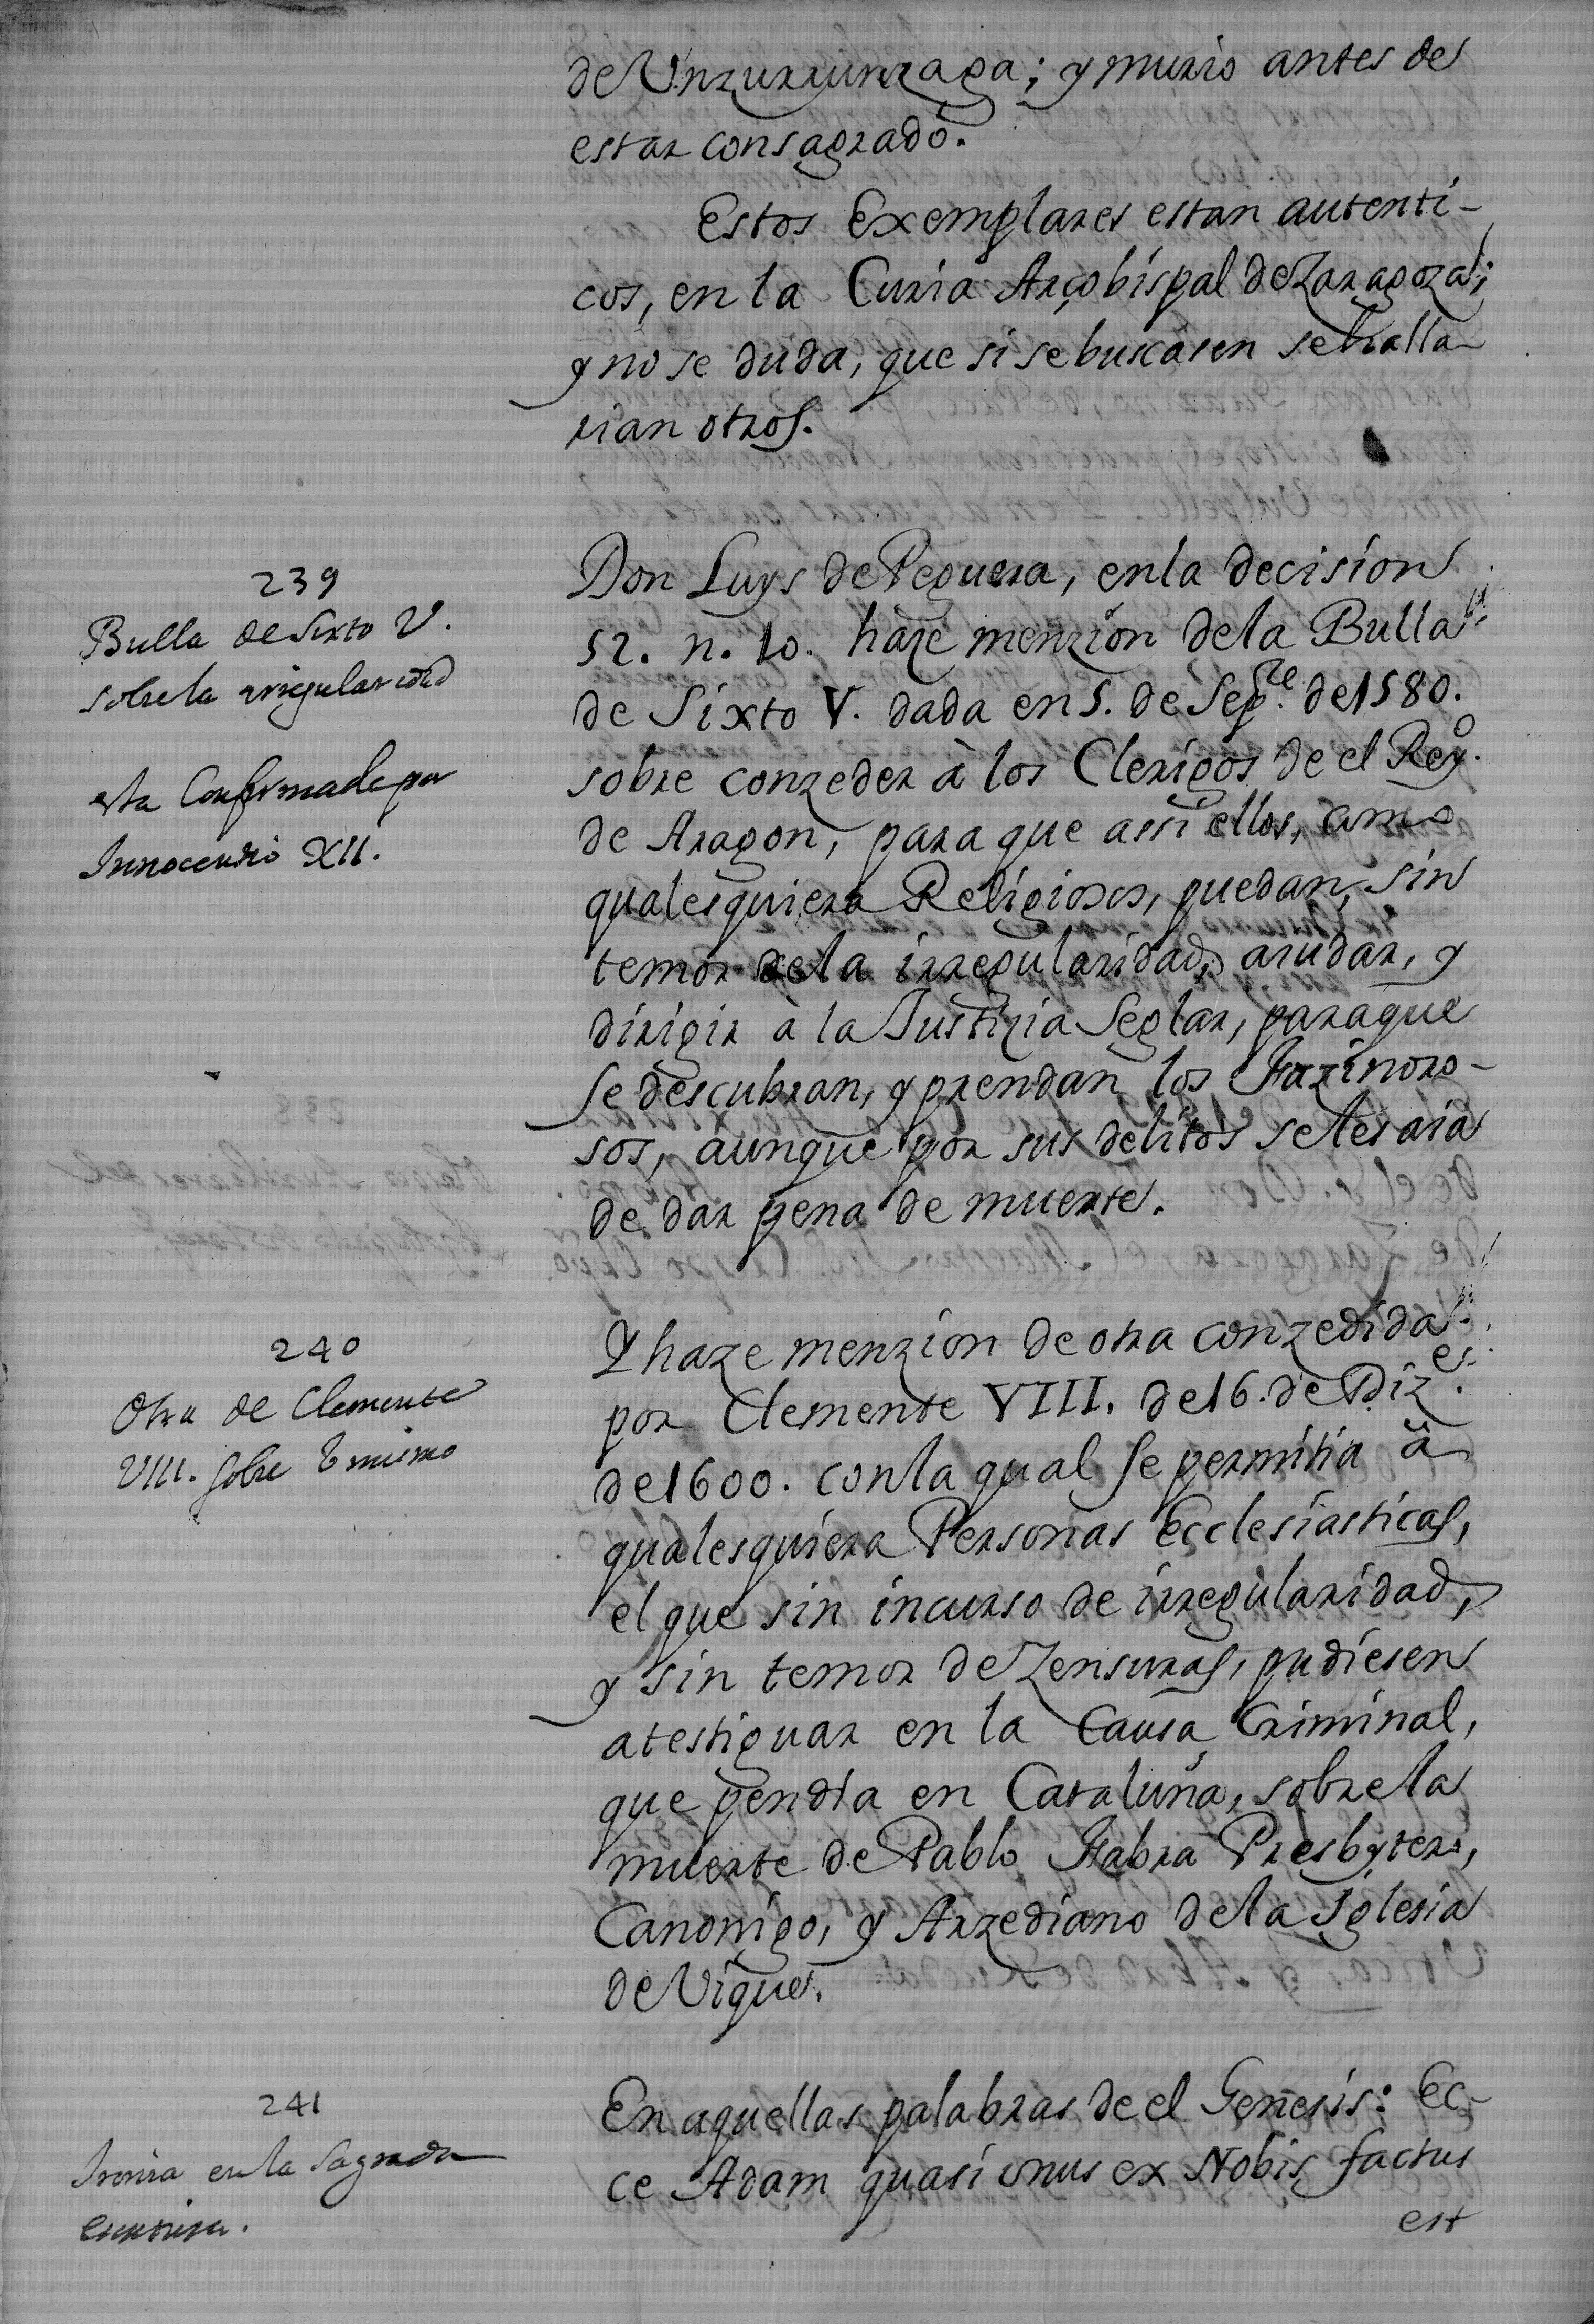 de Unzurrunzaga; y murio antes de
estar consagrado.
Estos Exemplares estan autenti-
cos, en la Curia Arçobispal de Zaragoza;
y no se duda, que si se buscasen se halla
rian otros.
239
Bulla de Sixto V.
sobre la irregularidad
esta Confirmada por
Innocencio XII.
Don Luys de Peguera, en la decision
52. n. 10. haze menzion de la Bulla
de Sixto V. dada en 5. de Sepre. de 1580.
sobre conzeder à los Clerigos de el Reyo.
de Aragon, para que assi ellos, como
qualesquiera Religiosos, puedan, sin
temor de la irregularidad, aiudar, y
dirigir à la Justizia Seglar, para que
se descubran, y prendan los Fazinoro-
sos, aunque por sus delitos se les aia
de dar pena de muerte.
240
Otra de Clemente
VIII. sobre lo mismo
Y haze menzion de otra conzedida
por Clemente VIII. de 16. de Dize.
de 1600. con la qual se permitia à
qualesquiera Personas Ecclesiasticas,
el que sin incurso de irregularidad,
y sin temor de Zensuras, pudiesen
atestiguar en la Causa Criminal,
que pendia en Cataluña, sobre la
muerte de Pablo Fabra Presbytero,
Canonigo, y Arzediano de la Iglesia
de Vique.
241
Ironia en la Sagrada
Escritura.
En aquellas palabras de el Genesis: Ec-
ce Adam quasi unus ex Nobis factus
est